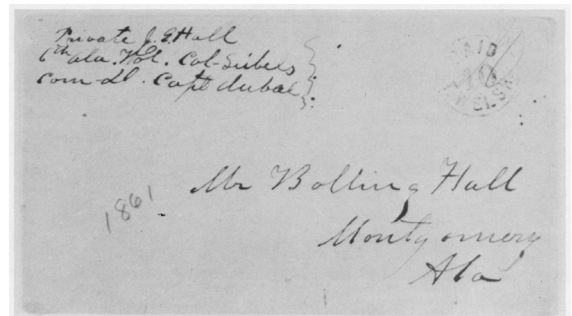 Private J. E Hall
6th Ala. Vol. Col-Sibels
Com-D. Capt dubac
PAID
WELSH
Mr Bolling Hall
1861
Montgomery
Ala